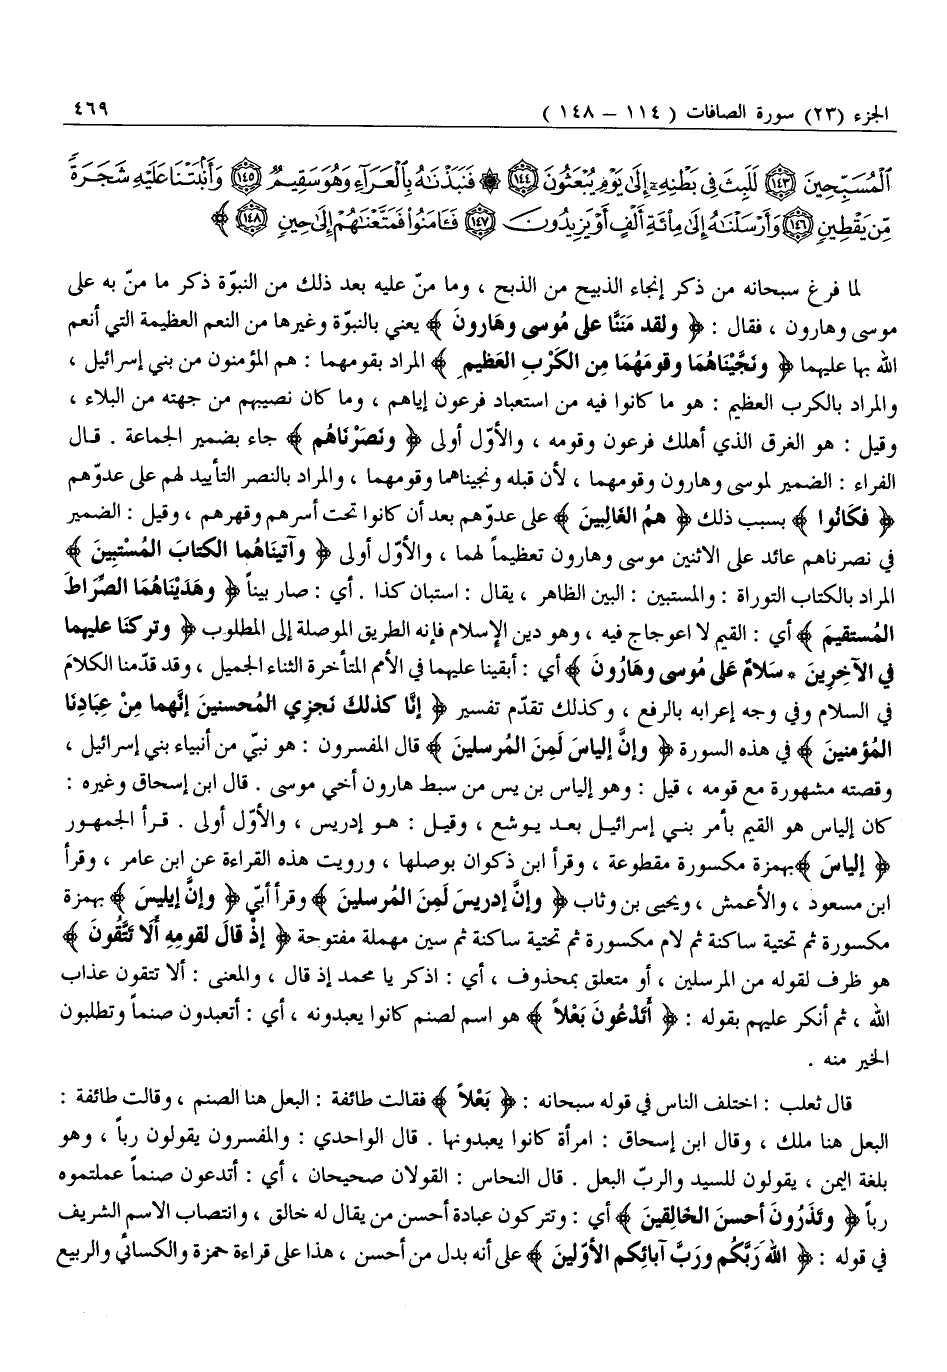 الجزء (٢٣) سورة الصافات ( ١١٤ – ١٤٨ ) ٤٦٩
ٱلْمُسَبِّحِينَ ١٤٣ لَلَبِثَ فِى بَطْنِهِۦٓ إِلَىٰ يَوْمِ يُبْعَثُونَ ١٤٤ ۞ فَنَبَذْنَٰهُ بِٱلْعَرَآءِ وَهُوَ سَقِيمٌ ١٤٥ وَأَنۢبَتْنَا عَلَيْهِ شَجَرَةً
مِّن يَقْطِينٍ ١٤٦ وَأَرْسَلْنَٰهُ إِلَىٰ مِا۟ئَةِ أَلْفٍ أَوْ يَزِيدُونَ ١٤٧ فَـَٔامَنُوا۟ فَمَتَّعْنَٰهُمْ إِلَىٰ حِينٍ ١٤٨ ﴾
لما فرغ سبحانه من ذكر إنجاء الذبيح من الذبح ، وما منّ عليه بعد ذلك من النبوّة ذكر ما منّ به على
موسى وهارون ، فقال : ﴿ ولقد مَنَنَّا على مُوسى وهارونَ ﴾ يعني بالنبوّة وغيرها من النعم العظيمة التي أنعم
الله بها عليهما ﴿ ونَجَّيْنَاهُمَا وقومَهُمَا مِن الكَرْبِ العَظيمِ ﴾ المراد بقومهما : هم المؤمنون من بني إسرائيل ،
والمراد بالكرب العظيم : هو ما كانوا فيه من استعباد فرعون إياهم ، وما كان نصيبهم من جهته من البلاء ،
وقيل : هو الغرق الذي أهلك فرعون وقومه ، والأوّل أولى ﴿ ونَصَرْنَاهُم ﴾ جاء بضمير الجماعة . قال
الفراء : الضمير لموسى وهارون وقومهما ، لأن قبله ونجيناهما وقومهما ، والمراد بالنصر التأييد لهم على عدوّهم
﴿ فكَانُوا ﴾ بسبب ذلك ﴿ همُ الغَالِبينَ ﴾ على عدوّهم بعد أن كانوا تحت أسرهم وقهرهم ، وقيل : الضمير
في نصرناهم عائد على الاثنين موسى وهارون تعظيماً لهما ، والأوّل أولى ﴿ وآتيناهُما الكتابَ المُسْتبِينَ ﴾
المراد بالكتاب التوراة : والمستبين : البين الظاهر ، يقال : استبان كذا . أي : صار بيناً ﴿ وهَدَيْنَاهُمَا الصِّرَاطَ
المُستقيمَ ﴾ أي : القيم لا اعوجاج فيه ، وهو دين الإسلام فإنه الطريق الموصلة إلى المطلوب ﴿ وتركنَا عليهما
في الآخِرِينَ * سَلَامٌ عَلى مُوسى وهَارُونَ ﴾ أي : أبقينا عليهما في الأمم المتأخرة الثناء الجميل ، وقد قدّمنا الكلامَ
في السلام وفي وجه إعرابه بالرفع ، وكذلك تقدّم تفسير ﴿ إنَّا كذلكَ نَجزِي المُحسنينَ إنَّهما مِنْ عِبَادِنَا
المُؤمنينَ ﴾ في هذه السورة ﴿ وإنَّ إلياسَ لَمِنَ المُرسلينَ ﴾ قال المفسرون : هو نبيّ من أنبياء بني إسرائيل ،
وقصته مشهورة مع قومه ، قيل : وهو إلياس بن يس من سبط هارون أخي موسى . قال ابن إسحاق وغيره :
كان إلياس هو القيم بأمر بني إسرائيل بعد يوشع ، وقيل : هو إدريس ، والأوّل أولى . قرأ الجمهور
﴿ إلياسَ ﴾ بهمزة مكسورة مقطوعة ، وقرأ ابن ذكوان بوصلها ، ورويت هذه القراءة عن ابن عامر ، وقرأ
ابن مسعود ، والأعمش ، ويحيى بن وثاب ﴿ وإنَّ إدريسَ لَمِنَ المُرسلينَ ﴾ وقرأ أبيّ ﴿ وإنَّ إيليسَ ﴾ بهمزة
مكسورة ثم تحتية ساكنة ثم لام مكسورة ثم تحتية ساكنة ثم سين مهملة مفتوحة ﴿ إذْ قالَ لقومِهِ ألَا تَتَّقُونَ ﴾
هو ظرف لقوله من المرسلين ، أو متعلق بمحذوف ، أي : اذكر يا محمد إذ قال ، والمعنى : ألا تتقون عذاب
الله ، ثم أنكر عليهم بقوله : ﴿ أَتَدْعُونَ بَعْلاً ﴾ هو اسم لصنم كانوا يعبدونه ، أي : أتعبدون صنماً وتطلبون
الخير منه .
قال ثعلب : اختلف الناس في قوله سبحانه : ﴿ بَعْلاً ﴾ فقالت طائفة : البعل هنا الصنم ، وقالت طائفة :
البعل هنا ملك ، وقال ابن إسحاق : امرأة كانوا يعبدونها . قال الواحدي : والمفسرون يقولون رباً ، وهو
بلغة اليمن ، يقولون للسيد والربّ البعل . قال النحاس : القولان صحيحان ، أي : أتدعون صنماً عملتموه
رباً ﴿ وتَذَرُونَ أحسنَ الخالِقينَ ﴾ أي : وتتركون عبادة أحسن من يقال له خالق ، وانتصاب الاسم الشريف
في قوله : ﴿ اللهَ رَبَّكُم ورَبَّ آبائِكم الأوّلينَ ﴾ على أنه بدل من أحسن ، هذا على قراءة حمزة والكسائي والربيع